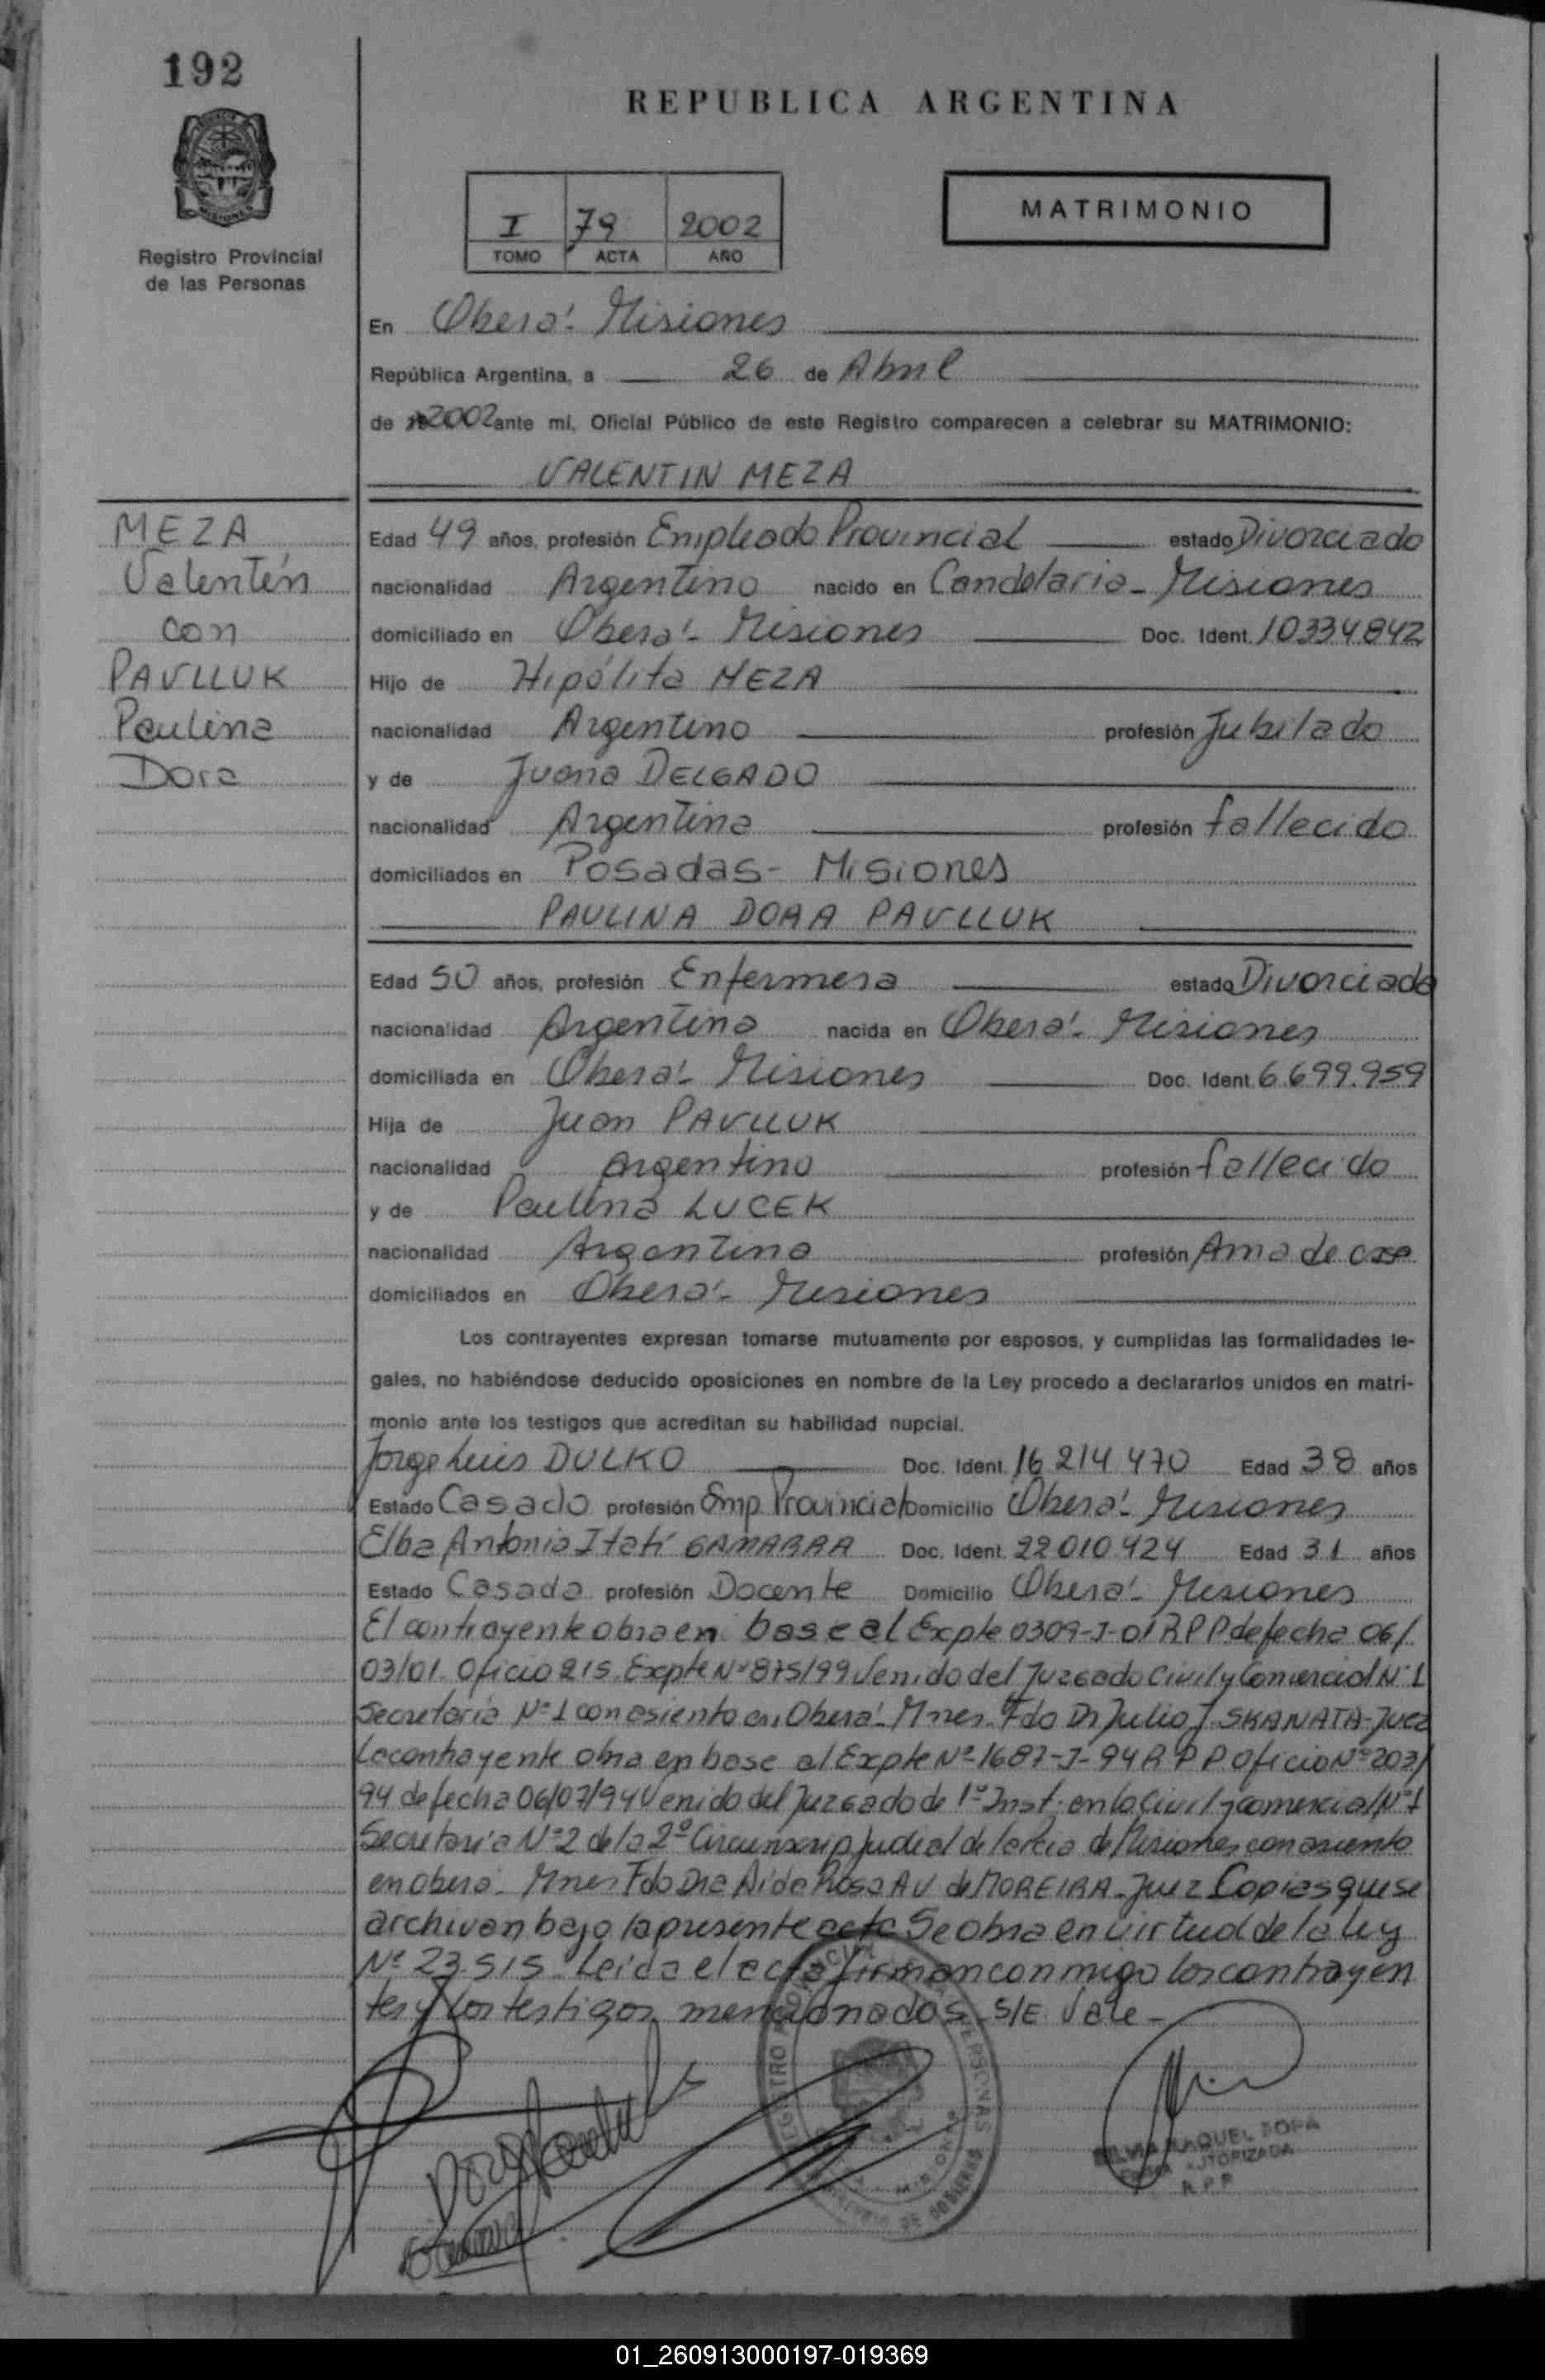 192
REPUBLICA ARGENTINA
Registro Provincial
de las Personas
I 79 2002
TOMO ACTA AÑO
MATRIMONIO
En Oberá- Misiones
República Argentina, a 26 de Abril
de 2002 ante mí, Oficial Público de este Registro comparecen a celebrar su MATRIMONIO:
VALENTIN MEZA
MEZA
Valentín
con
PAVLLUK
Paulina
Dora
Edad 49 años, profesión Empleado Provincial estado Divorciado
nacionalidad Argentino nacido en Candelaria - Misiones
domiciliado en Oberá- Misiones Doc. Ident. 10334842
Hijo de Hipólito MEZA
nacionalidad Argentino profesión Jubilado
y de Juana DELGADO
nacionalidad Argentina profesión fallecido
domiciliados en Posadas- Misiones
PAULINA DORA PAVLLUK
Edad 50 años, profesión Enfermera estado Divorciada
nacionalidad Argentina nacida en Oberá- Misiones
domiciliada en Oberá- Misiones Doc. Ident. 6.699.959
Hija de Juan PAVLLUK
nacionalidad Argentino profesión fallecido
y de Paulina LUCEK
nacionalidad Argentina profesión Ama de casa
domiciliados en Oberá- Misiones
Los contrayentes expresan tomarse mutuamente por esposos, y cumplidas las formalidades le-
gales, no habiéndose deducido oposiciones en nombre de la Ley procedo a declararlos unidos en matri-
monio ante los testigos que acreditan su habilidad nupcial.
Jorge Luis DULKO Doc. Ident. 16 214 470 Edad 38 años
Estado Casado profesión Emp. Provincial Domicilio Oberá- Misiones
Elba Antonia Itatí GAMARRA Doc. Ident. 22 010 424 Edad 31 años
Estado Casada profesión Docente Domicilio Oberá- Misiones
El contrayente obra en base al Expte 0309-J-01 R P P de fecha 06/
03/01 Oficio 215. Expte Nº 875/99 Venido del Juzgado Civil y Comercial Nº 1
Secretaría Nº 1 con asiento en Oberá- Mnes. Fdo Dr Julio J. SKANATA- Juez
La contrayente obra en base al Expte Nº 1687-J-94 R P P Oficio Nº 203/
94 de fecha 06/07/94 Venido del Juzgado de 1º Inst. en lo Civil y comercial Nº 1
Secretaría Nº 2 de la 2º Circunscrip Judicial de la Pcia de Misiones con asiento
en Oberá- Mnes Fdo Dra Aida Rosa AV. de MOREIRA- Juez Copias que se
archivan bajo la presente acta Se obra en virtud de la ley
Nº 23.515 Leida el acta firman conmigo los contrayen
tes y los testigos mencionados- S/E Vale-
REGISTRO PROVINCIAL DE LAS PERSONAS
MISIONES
MINISTERIO DE GOBIERNO
SILVIA RAQUEL
FIRMA AUTORIZADA
R.P.P.
01_260913000197-019369